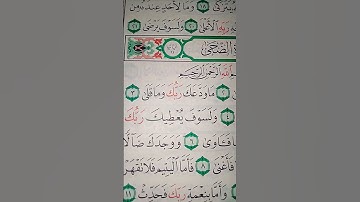 يَتَزَكَّىٰ ١٨ وَمَا لِأَحَدٍ عِندَهُۥ مِن
رَبِّهِ ٱلْأَعْلَىٰ ٢٠ وَلَسَوْفَ يَرْضَىٰ ٢١
ٱلضُّحَىٰ
ٱللَّهِ ٱلرَّحْمَٰنِ ٱلرَّحِيمِ
مَا وَدَّعَكَ رَبُّكَ وَمَا قَلَىٰ ٣
٤ وَلَسَوْفَ يُعْطِيكَ رَبُّكَ
فَـَٔاوَىٰ ٦ وَوَجَدَكَ ضَآلًّا
فَأَغْنَىٰ ٨ فَأَمَّا ٱلْيَتِيمَ فَلَا تَقْهَرْ
وَأَمَّا بِنِعْمَةِ رَبِّكَ فَحَدِّثْ ١١